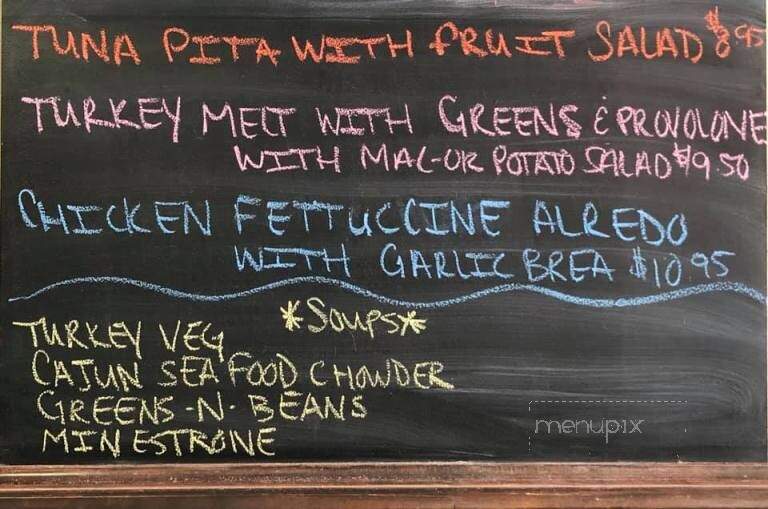 TUNA PITA WITH FRUIT SALAD $8.95
TURKEY MELT WITH GREENS & PROVOLONE
WITH MAC-OR POTATO SALAD $9.50
CHICKEN FETTUCCINE ALREDO
WITH GARLIC BREA $10.95
*SOUPS*
TURKEY VEG
CAJUN SEAFOOD CHOWDER
GREENS-N-BEANS
MINESTRONE
menupix